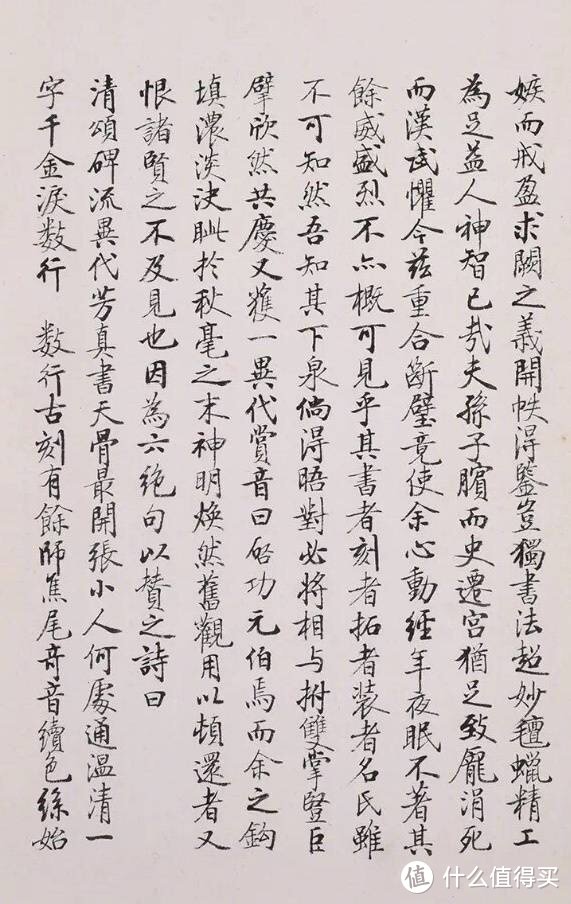 嫉而戒盈求闕之義開帙得鑒豈獨書法超妙氊蠟精工
為足益人神智已哉夫孫子臏而史遷宮猶足致龐涓死
而漢武懼今茲重合斷璧竟使余心動經年夜眠不著其
餘威盛烈不亦概可見乎其書者刻者拓者装者名氏雖
不可知然吾知其下泉倘得晤對必將相与拊雙掌豎巨
擘欣然共慶又獲一異代賞音曰啓功元伯焉而余之鈎
填濃淡決眦於秋毫之末神明煥然舊觀用以頓還者又
恨諸賢之不及見也因為六絶句以贊之詩曰
清頌碑流異代芳真書天骨最開張小人何處通溫凊一
字千金淚数行 数行古刻有餘師焦尾奇音續色絲始
值 什么值得买